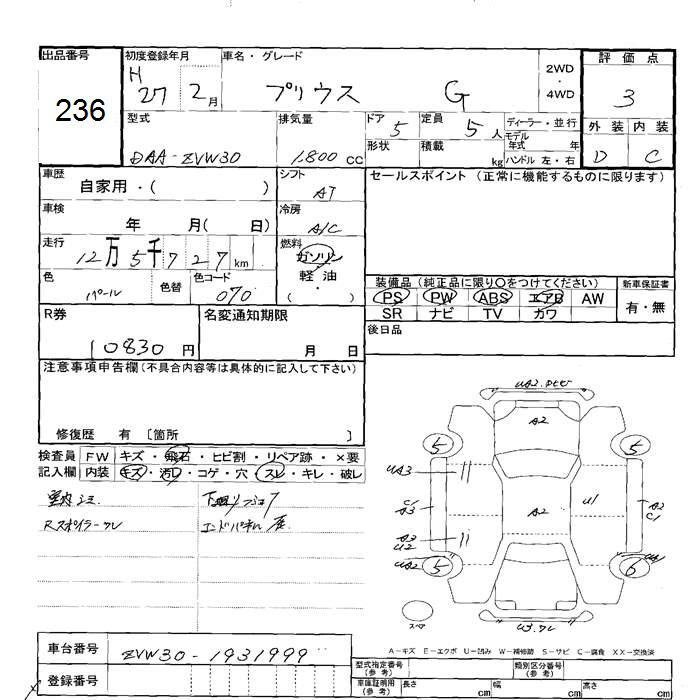 出品番号
236
初度登録年月
H 27 2月
車名・グレード
プリウス G
2WD
4WD
評価点
3
外装 内装
D C
型式
DAA-ZVW30
排気量
1,800 cc
ドア 5
定員 5人
ディーラー・並行
モデル年式 年
形状
積載 kg
ハンドル 左・右
車歴
自家用・( )
シフト
AT
セールスポイント (正常に機能するものに限ります)
車検
年 月( 日)
冷房
A/C
走行
12万5千727km
燃料
ガソリン・軽油
( )
色
パール
色替
色コード
070
装備品 (純正品に限り〇をつけてください)
PS PW ABS エアB AW
SR ナビ TV カワ
新車保証書
有・無
R券
10830円
名変通知期限
月 日
後日品
注意事項申告欄(不具合内容等は具体的に記入して下さい)
修復歴 有 〔箇所 〕
検査員記入欄
FW キズ・飛石・ヒビ割・リペア跡・×要
内装 キズ・汚れ・コゲ・穴・スレ・キレ・破レ
室内シミ
Rスポイラーワレ
下廻りサビ
UA2
A2
5 5
UA3
C1
A3
A2
U1
A2
C1
A3
U2
UA2
5 6
UA1
スペア
U3.ワレ
A-キズ E-エクボ U-凹み W-補修跡 S-サビ C-腐食 XX-交換済
車台番号
ZVW30-1931999
登録番号
型式指定番号(参考)
類別区分番号(参考)
車庫証明用(参考) 長さ cm 幅 cm 高さ cm